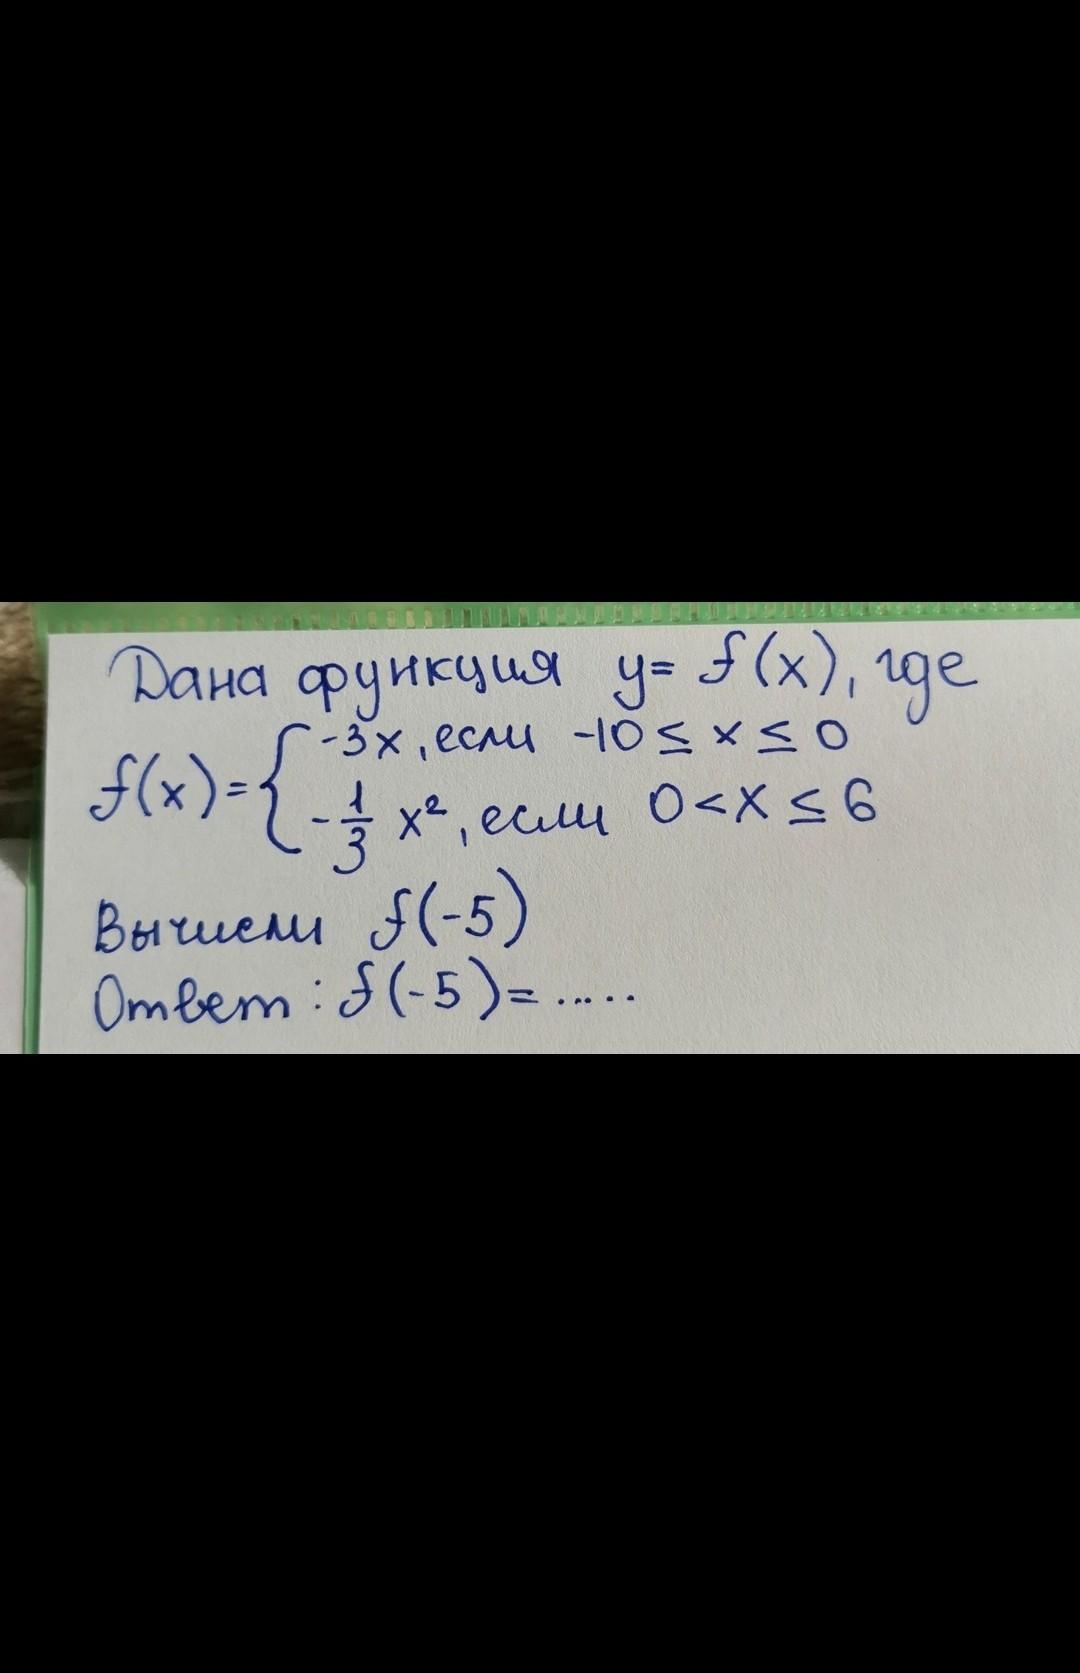 Дана функция y= f(x), где
f(x)= { -3x, если -10 ≤ x ≤ 0
-1/3 x², если 0 < x ≤ 6
Вычисли f(-5)
Ответ: f(-5)= .....